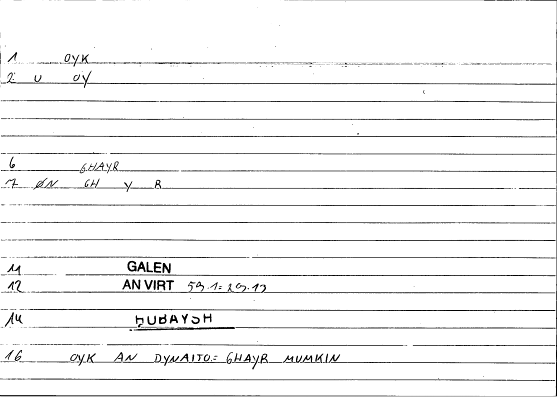 1 OYK
2 U OY
6 GHAYR
7 ØN GH Y R
11 GALEN
12 AN VIRT 59.1 = 29.13
14 ḤUBAYSH
16 OYK AN DYNAITO = GHAYR MUMKIN